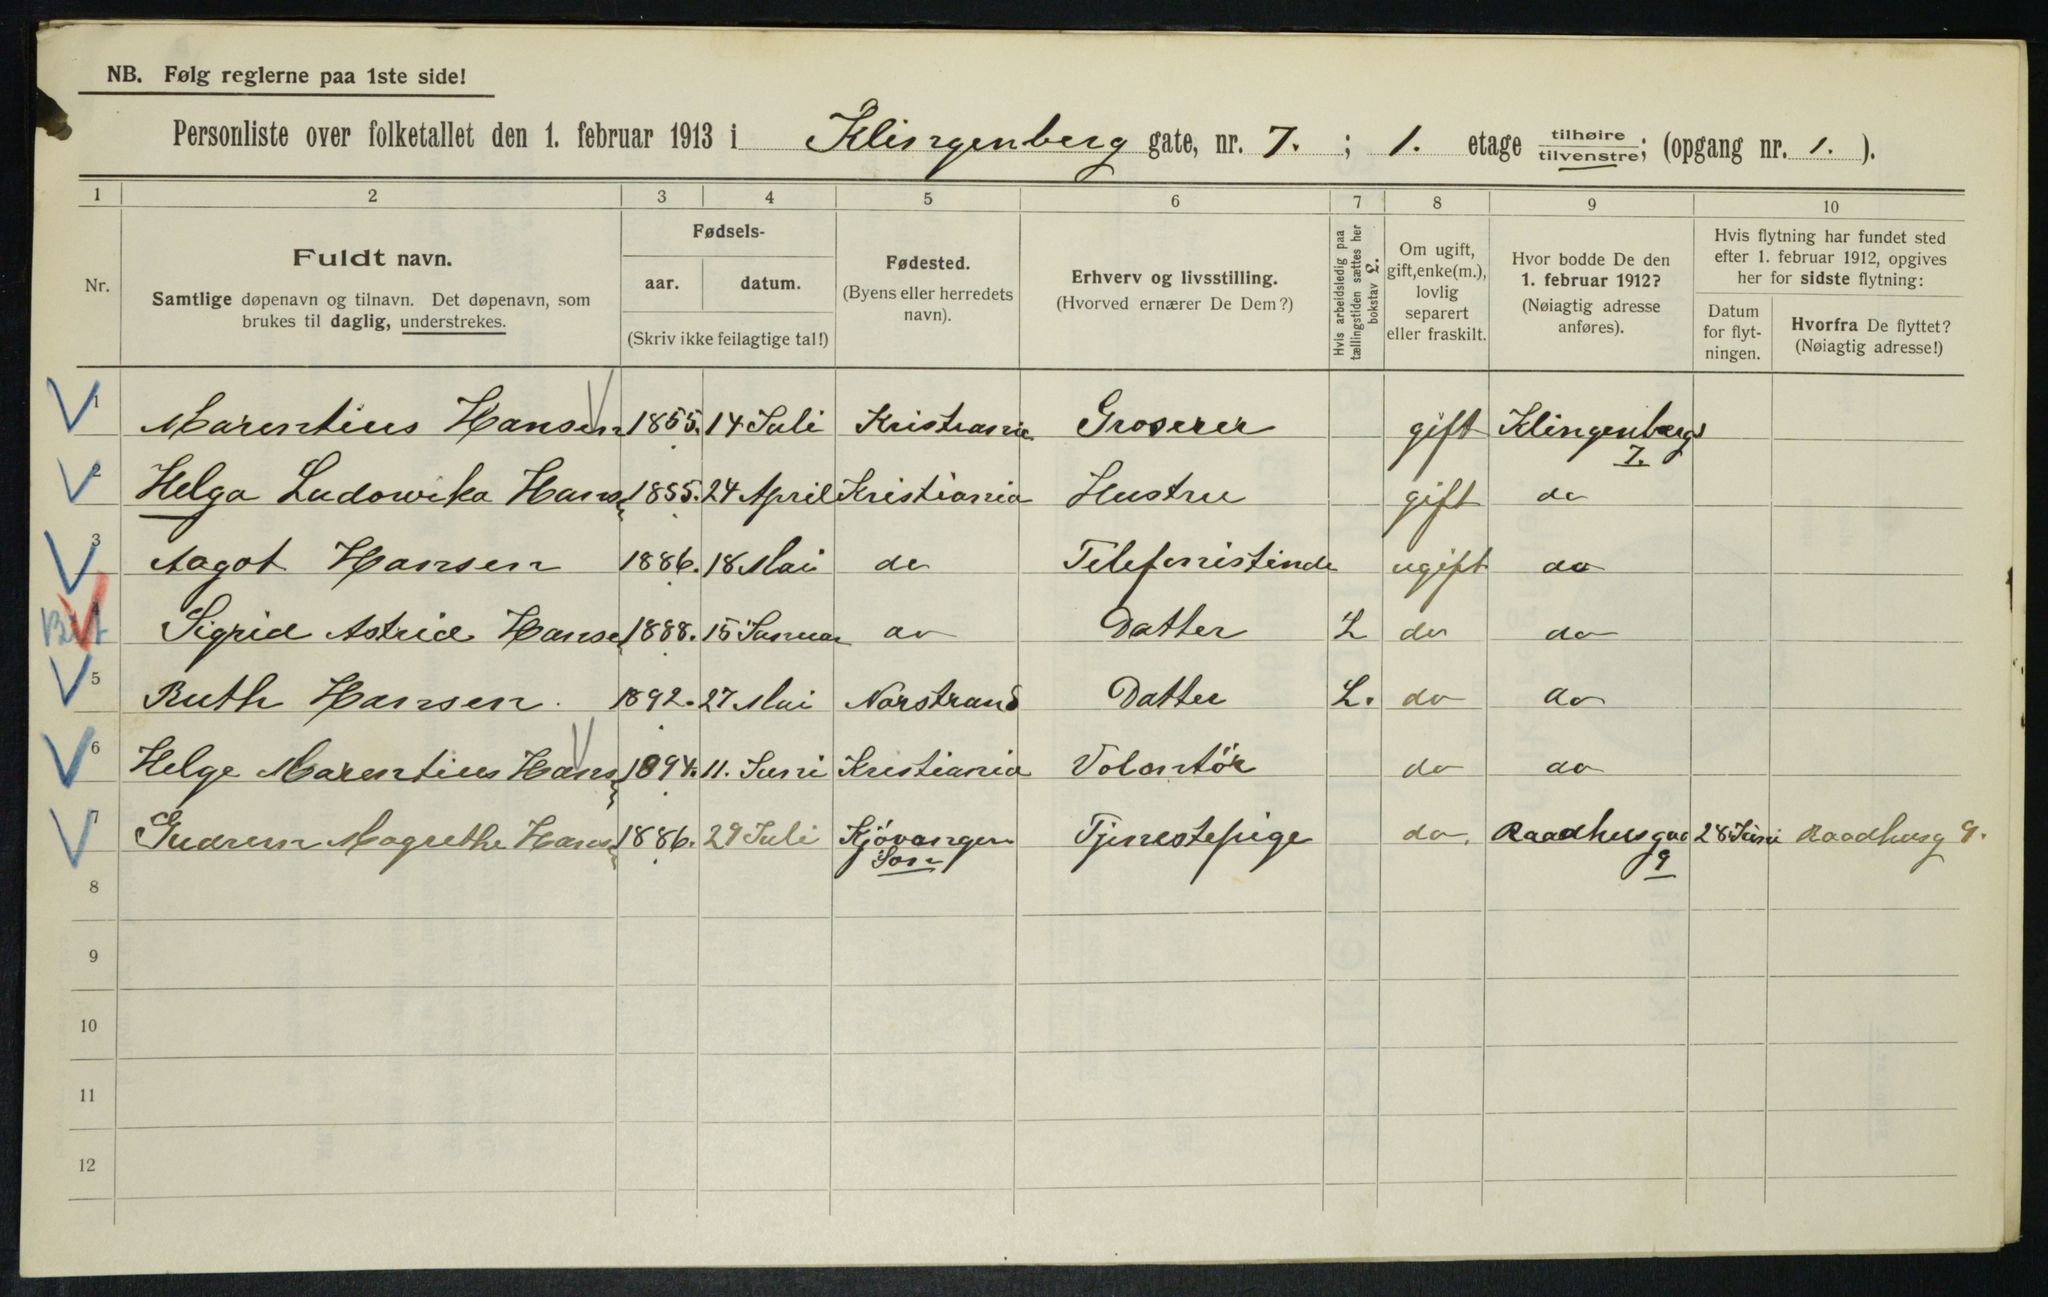 NB. Følg reglerne paa 1ste side!
Personliste over folketallet den 1. februar 1913 i Klingenberg gate, nr. 7. ; 1. etage tilhøire/tilvenstre; (opgang nr. 1. ).
1 2 3 4 5 6 7 8 9 10
Nr.
Fuldt navn.
Samtlige døpenavn og tilnavn. Det døpenavn, som
brukes til daglig, understrekes.
Fødsels-
aar. datum.
(Skriv ikke feilagtige tal!)
Fødested.
(Byens eller herredets
navn).
Erhverv og livsstilling.
(Hvorved ernærer De Dem?)
Hvis arbeidsledig paa
tællingstiden sættes her
bokstav L.
Om ugift,
gift, enke(m.),
lovlig
separert
eller fraskilt.
Hvor bodde De den
1. februar 1912?
(Nøiagtig adresse
anføres).
Hvis flytning har fundet sted
efter 1. februar 1912, opgives
her for sidste flytning:
Datum
for flyt-
ningen.
Hvorfra De flyttet?
(Nøiagtig adresse!)
1 Marentius Hansen 1855. 14 Juli Kristiania Groserer gift Klingenbergg
7.
2 Helga Ludowika Hans 1855. 24 April Kristiania Hustru gift do
3 Aagot Hansen 1886. 18 Mai do Telefonistinde ugift do
4 Sigrid Astrid Hanse 1888. 15 Januar do Datter L do do
5 Ruth Hansen. 1892. 27 Mai Norstrand Datter L. do do
6 Helge Marentius Hans 1894. 11. Juni Kristiania Volontör do do
7 Gudrun Magrethe Hans 1886. 29 Juli Kjövangen Tjenestepige do. Raadhusgad 28 Juni Raadhusg 9.
Son 9
8
9
10
11
12